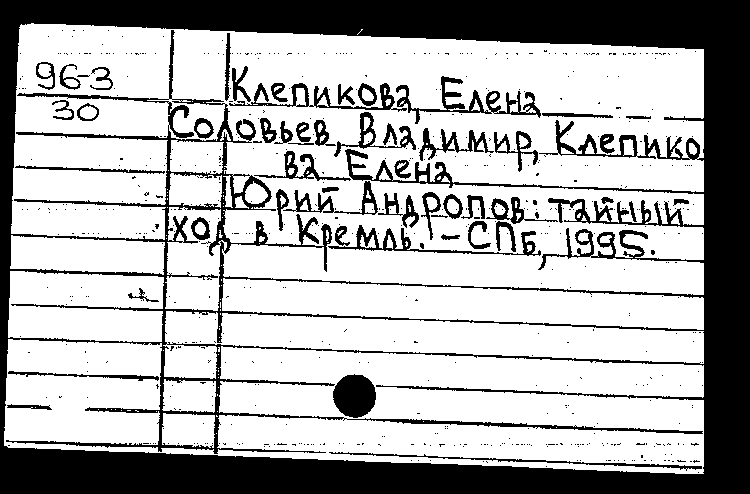 96-3
30
Клепикова, Елена
Соловьев, Владимир, Клепико
ва Елена
Юрий Андропов: тайный
ход в Кремль. - СПб, 1995.